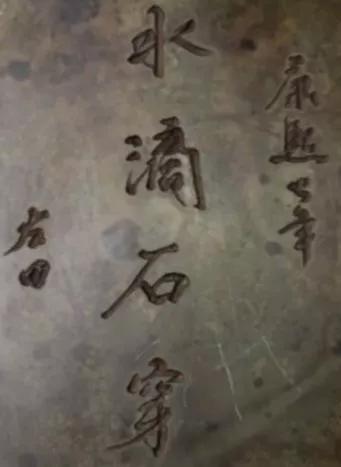 康熙七年
水滴石穿
古田